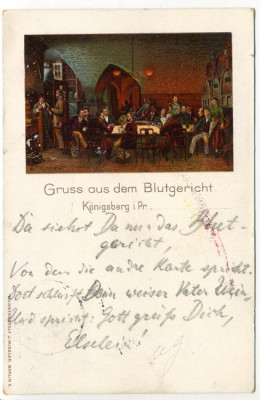 Gruss aus dem Blutgericht
Königsberg i. Pr.
Da siehst Du nun das Blut-
gericht,
Von dem die andre Karte spricht.
Dort schlürft Dein weiser Vater Wein,
Und spricht: Gott grüß Dich,
Elselein!